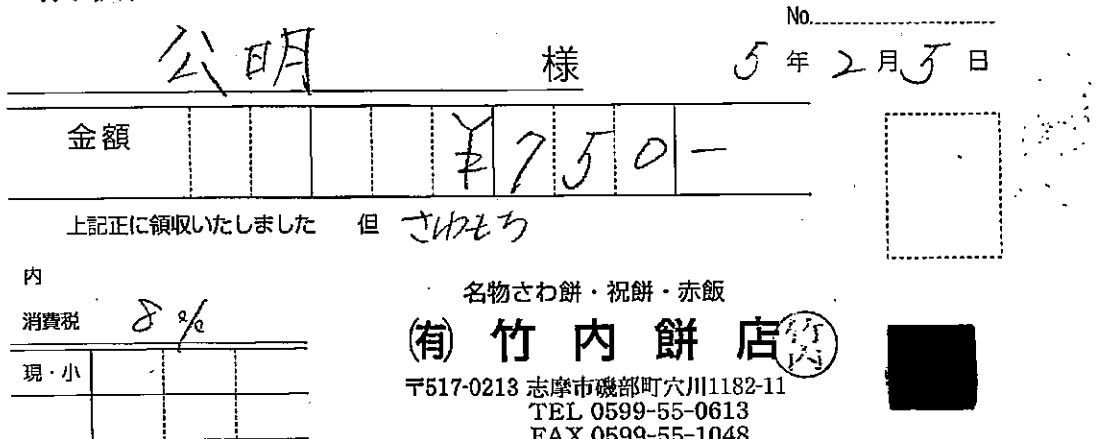 No.
公明 様 5年2月5日
金額 ¥750-
上記正に領収いたしました 但 さわもち
内
消費税 8%
現・小
名物さわ餅・祝餅・赤飯
(有) 竹内餅店 竹内
〒517-0213 志摩市磯部町穴川1182-11
TEL 0599-55-0613
FAX 0599-55-1048